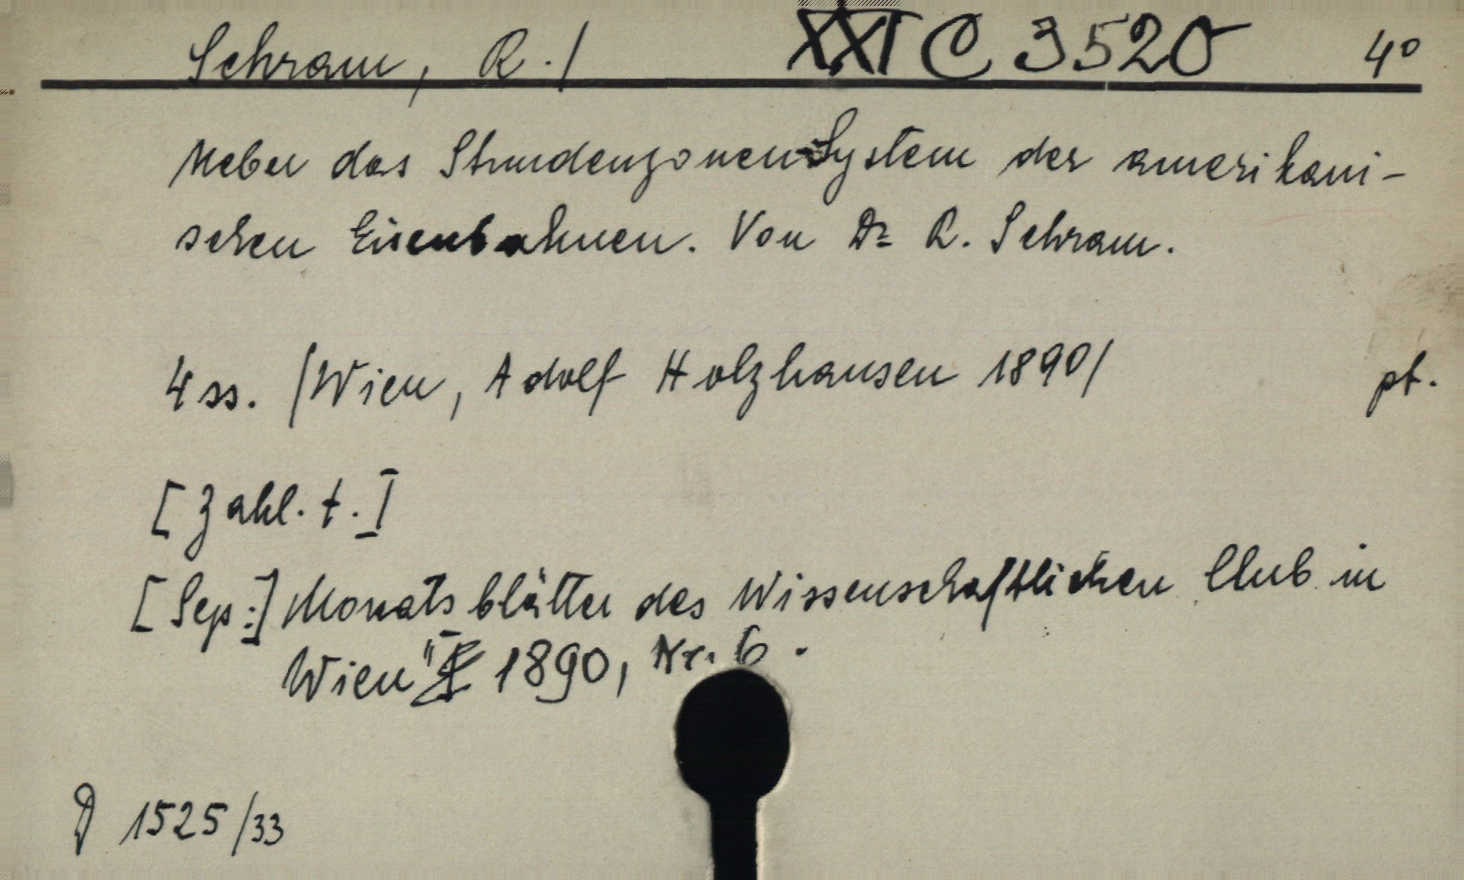 Schram, R./ XXI C 3520 4°
Ueber das Stundenzonen-System der amerikani-
schen Eisenbahnen. Von Dr R. Schram.
4 ss. /Wien, Adolf Holzhausen 1890/ pt.
[Zahl. t.]
[Sep:] Monatsblätter des Wissenschaftlichen Club in
Wien" 1890, Nr. 6.
D 1525/33